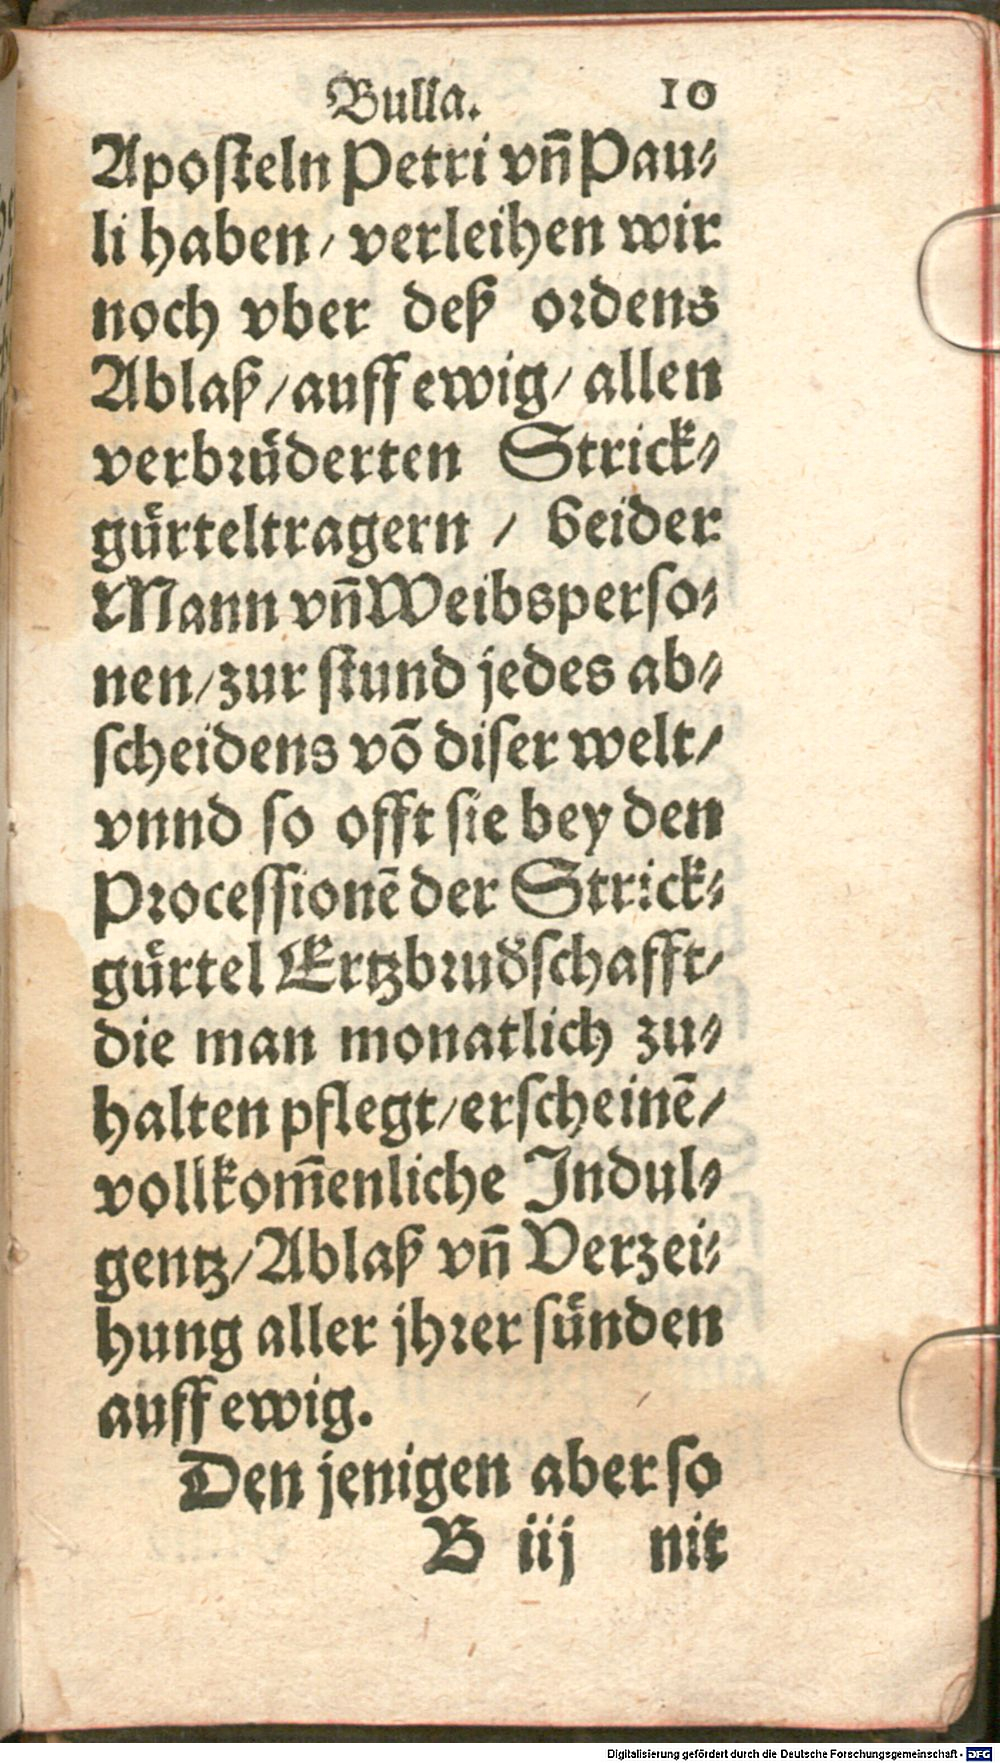 Bulla. 10
Apoſteln Petri vñ Pau⸗
li haben/ verleihen wir
noch vber deß ordens
Ablaß/auff ewig/ allen
verbruͤderten Strick⸗
guͤrteltragern / beider
Mann vñ Weibsperſo⸗
nen/zur ſtund jedes ab⸗
ſcheidens võ diſer welt/
vnnd ſo offt ſie bey den
Proceſſionẽ der Strick⸗
guͤrtel Ertzbrud̕ſchafft/
die man monatlich zu⸗
halten pflegt/erſcheinẽ/
vollkom̃enliche Indul⸗
gentz/Ablaß vñ Verzei⸗
hung aller jhrer ſuͤnden
auff ewig.
Den jenigen aber ſo
B iij nit
Digitalisierung gefördert durch die Deutsche Forschungsgemeinschaft - DFG